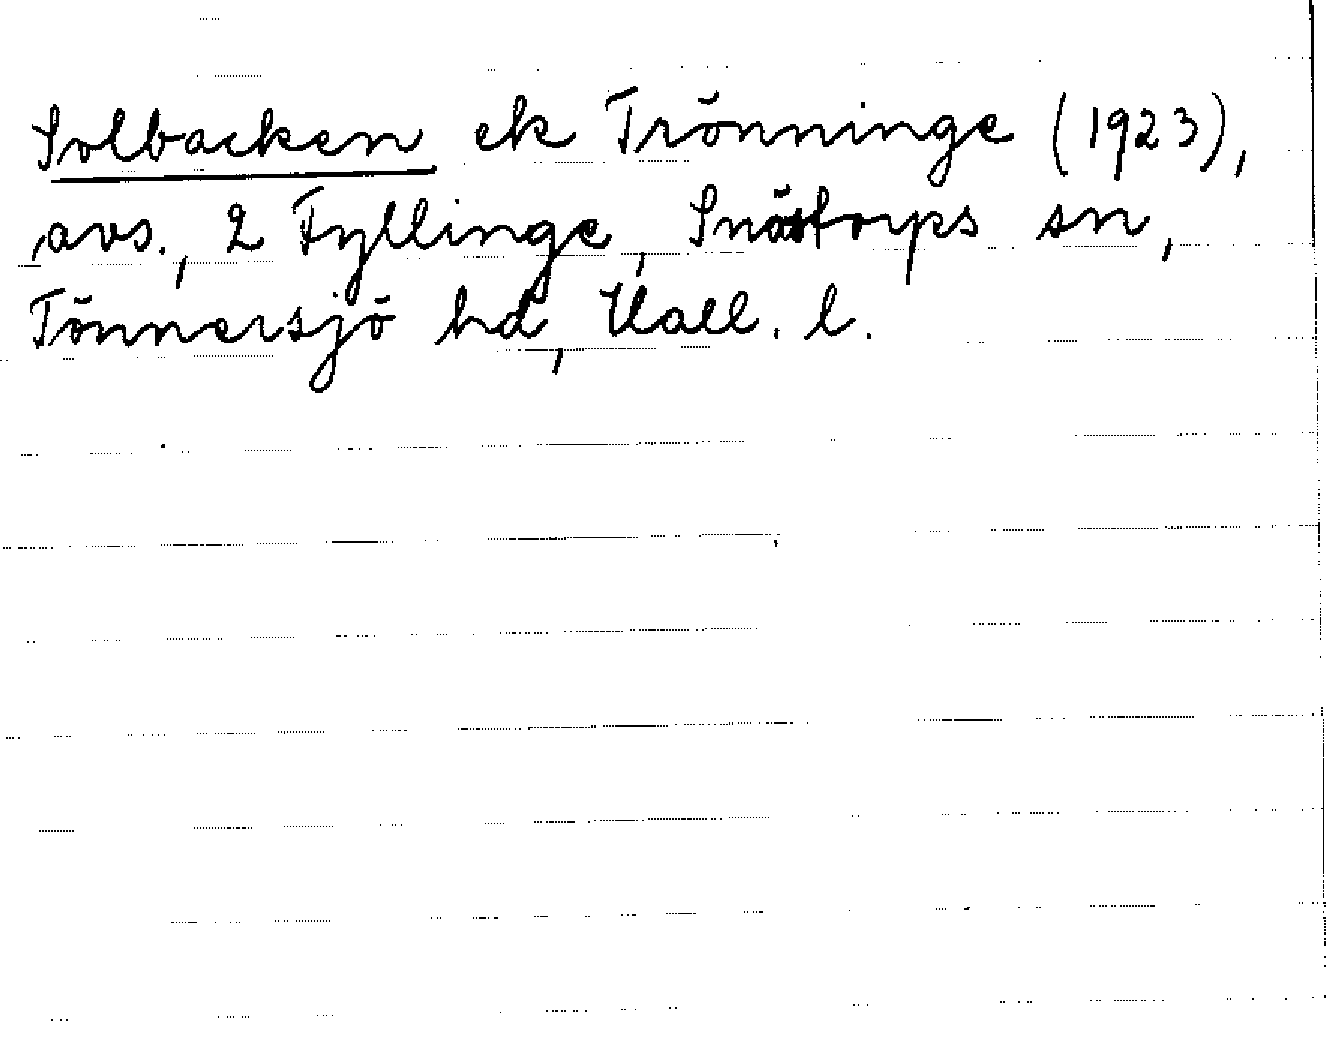 Solbacken ek Trönninge (1923),
avs., 2 Fyllinge, Snöstorps sn,
Tönnersjö hd, Hall. l.